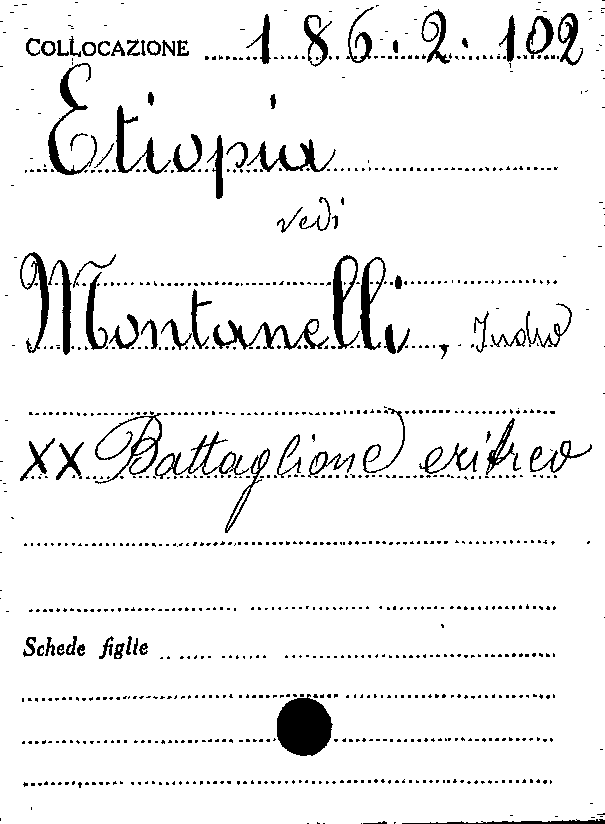 COLLOCAZIONE 186.2.102
Etiopia
vedi
Montanelli, Indro
XX Battaglione eritreo
Schede figlie